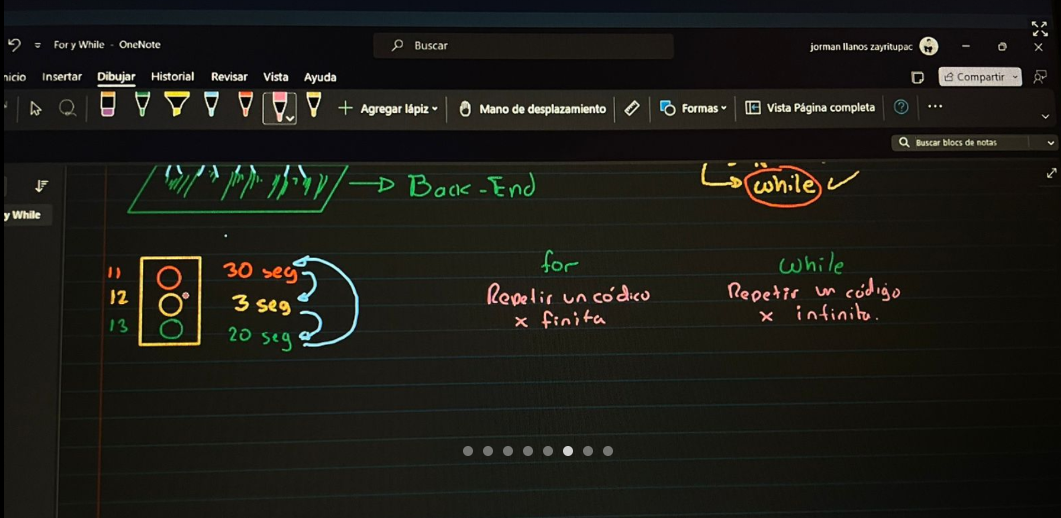 For y While - OneNote
Buscar
jorman llanos zayritupac
nicio Insertar Dibujar Historial Revisar Vista Ayuda
Compartir
Agregar lápiz
Mano de desplazamiento
Formas
Vista Página completa
Buscar blocs de notas
y While
Back-End
while
11 30 seg
12 3 seg
13 20 seg
for
Repetir un códico
x finita
while
Repetir un código
x infinita.